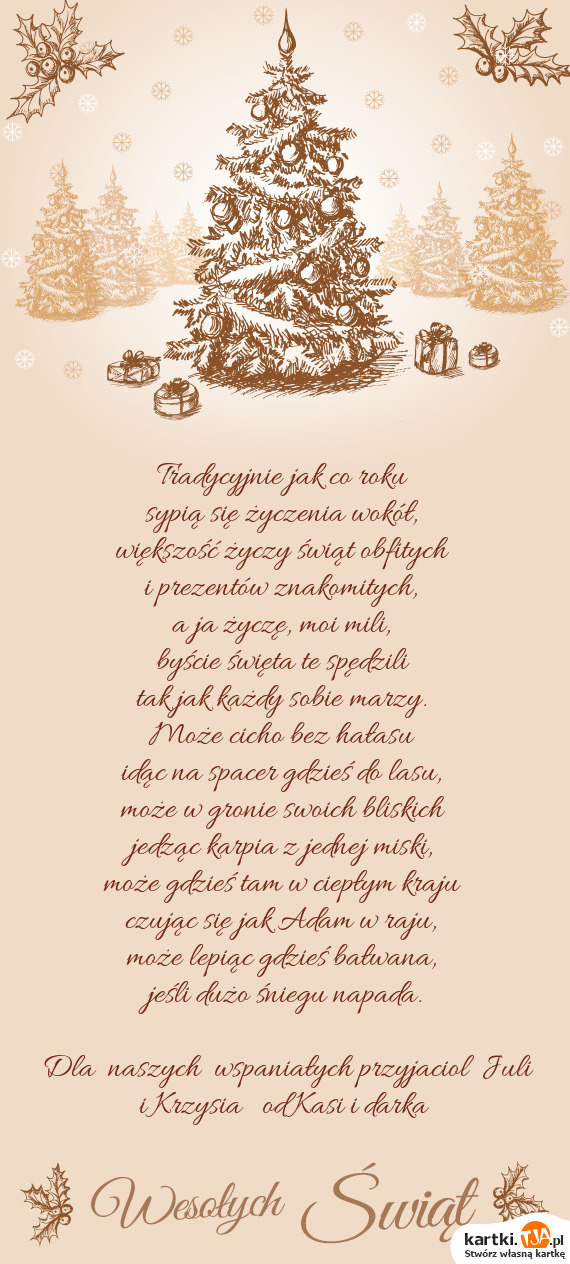 Tradycyjnie jak co roku
sypią się życzenia wokół,
większość życzy świąt obfitych
i prezentów znakomitych,
a ja życzę, moi mili,
byście święta te spędzili
tak jak każdy sobie marzy.
Może cicho bez hałasu
idąc na spacer gdzieś do lasu,
może w gronie swoich bliskich
jedząc karpia z jednej miski,
może gdzieś tam w ciepłym kraju
czując się jak Adam w raju,
może lepiąc gdzieś bałwana,
jeśli dużo śniegu napada.
Dla naszych wspaniałych przyjaciol Juli
i Krzysia od Kasi i darka
Wesołych Świąt
kartki.TJA.pl
Stwórz własną kartkę